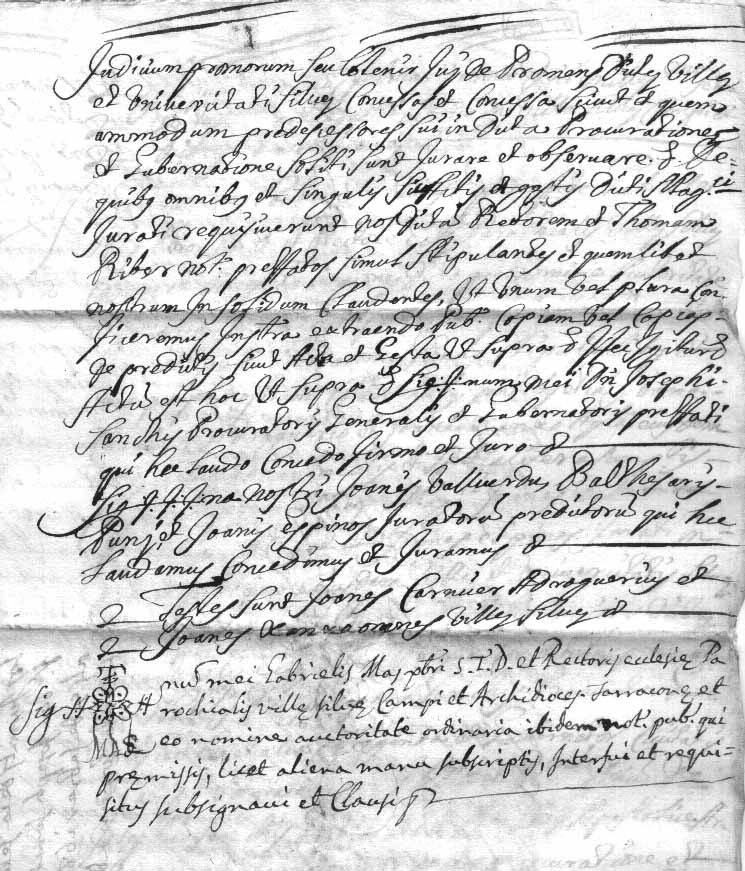 Judicium promorum seu lo tenir Juy de Promens Dictę Villę
et Universitati Silvę Concessas et Concessa sunt et quem
ammodum predesessores sui in Dicta Procuratione
et Gubernatione soliti sunt Jurare et observare. De
quibq omnibq et singulis sic ffitis et gestis Dicti Mag.ci
Jurati requisiverunt nos Dictū Rectorem et Thomam
Riber not. preffatos simul stipulantes et quemlibet
nostrum In solidum Claudentes, Ut Unum vel plura Con
ficeremus Instra extraendo pub. Copiam vel Copias
de predictis sunt Acta et Gesta Ut supra
est hoc Ut supra Sig++num mei Dn Josephi
Sanchis Procuratoris Generalis et Gubernatoris preffati
qui hec Laudo Concedo firmo et Juro &
Sig+++na nostri Joanis Vallverdu, Balthesaris
et Joanis espinos Juratorū predictorū qui hec
Laudamus Concedimus et Juramus &
Testes sunt Joanes Carnicer Adroguerius et
Joanes omnes Villę Silvę &
Sig++ ++ nū mei Gabrielis Mas pbri S.T.D. et Rectoris eclesię Pa
rochialis villę silvę Campi et Archidioces. Tarraconę et
MAS eo nomine auctoritate ordinaria ibidem not. pub. qui
pręmissis, licet aliena manu subscriptis, Interfui et requi=
situs subsignavi et Clausi